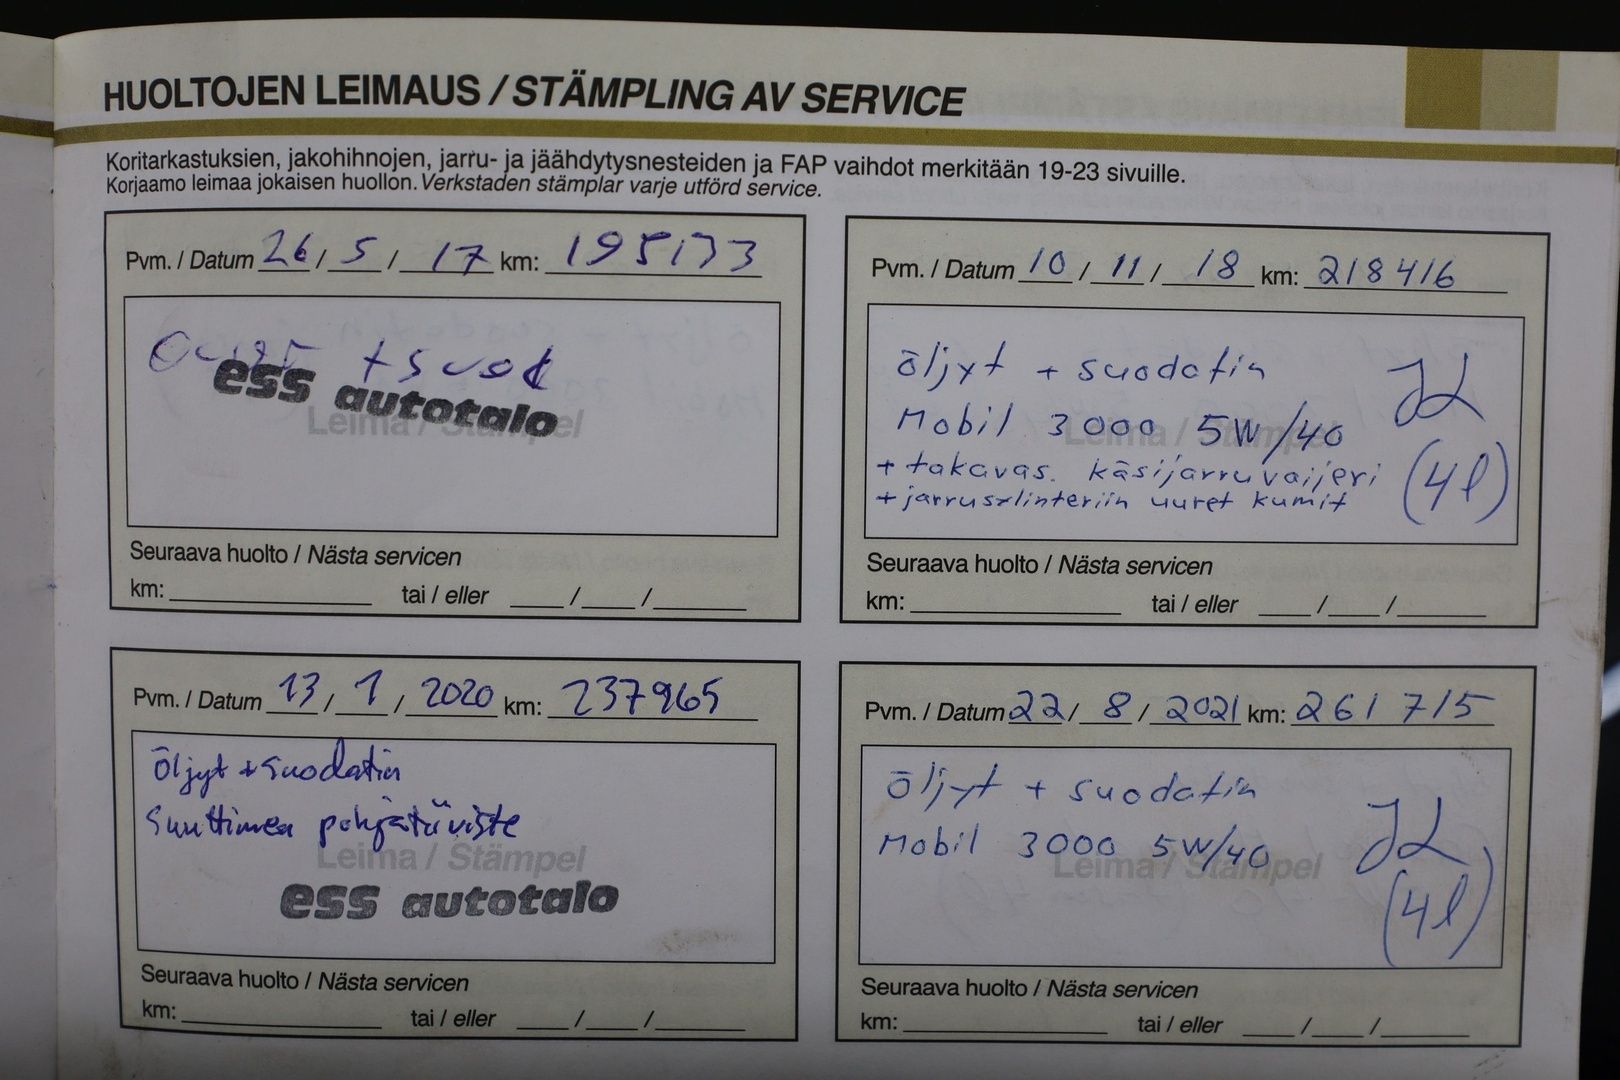 HUOLTOJEN LEIMAUS / STÄMPLING AV SERVICE
Koritarkastuksien, jakohihnojen, jarru- ja jäähdytysnesteiden ja FAP vaihdot merkitään 19-23 sivuille.
Korjaamo leimaa jokaisen huollon. Verkstaden stämplar varje utförd service.
Pvm. / Datum 26 / 5 / 17 km: 195133
+ suod
ess autotalo
Leima / Stämpel
Seuraava huolto / Nästa servicen
km: tai / eller / /
Pvm. / Datum 10 / 11 / 18 km: 218416
öljyt + suodatin
Mobil 3000 5W/40
JL
Leima / Stämpel
+ takavas. käsijarruvaijeri
+ jarrusylinteriin uuret kumit
(4l)
Seuraava huolto / Nästa servicen
km: tai / eller / /
Pvm. / Datum 13 / 1 / 2020 km: 237965
öljyt + suodatin
Suuttimen pohjatiiviste
Leima / Stämpel
ess autotalo
Seuraava huolto / Nästa servicen
km: tai / eller / /
Pvm. / Datum 22 / 8 / 2021 km: 261715
öljyt + suodatin
Mobil 3000 5W/40
JL
Leima / Stämpel
(4l)
Seuraava huolto / Nästa servicen
km: tai / eller / /